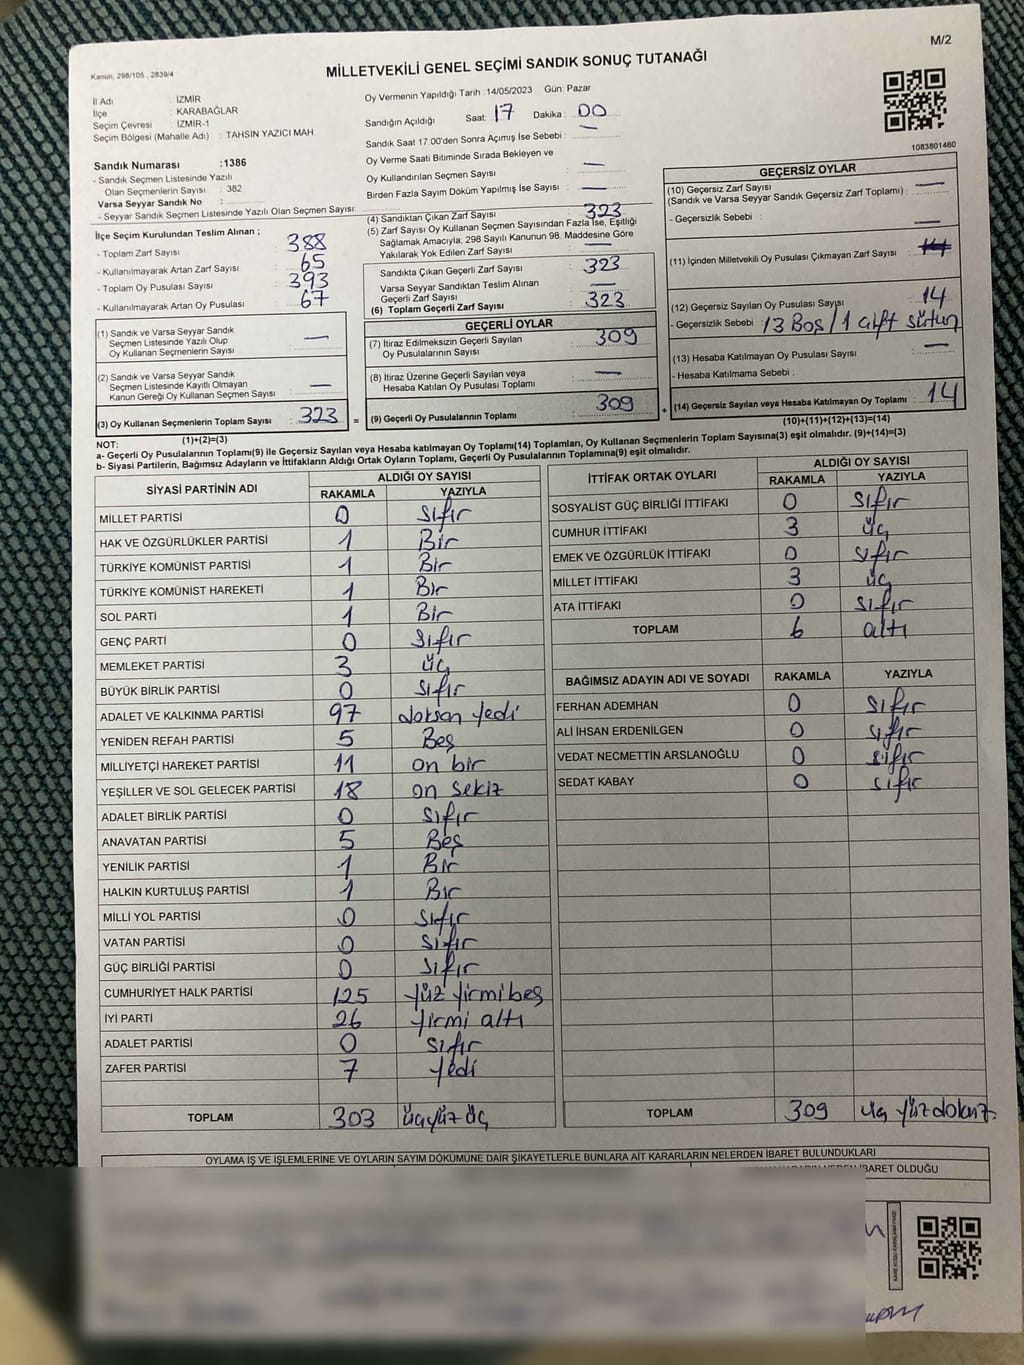 M/2
Kanun, 298/105 , 2839/4
MİLLETVEKİLİ GENEL SEÇİMİ SANDIK SONUÇ TUTANAĞI
İl Adı : İZMİR
İlçe : KARABAĞLAR
Seçim Çevresi : İZMİR-1
Seçim Bölgesi (Mahalle Adı) : TAHSİN YAZICI MAH
Oy Vermenin Yapıldığı Tarih :14/05/2023 Gün: Pazar
Sandığın Açıldığı Saat: 17 Dakika : 00
Sandık Saat 17:00'den Sonra Açmış İse Sebebi : —
Oy Verme Saati Bitiminde Sırada Bekleyen ve
Oy Kullandırılan Seçmen Sayısı : —
Birden Fazla Sayım Döküm Yapılmış İse Sayısı : —
1083801460
Sandık Numarası :1386
- Sandık Seçmen Listesinde Yazılı
Olan Seçmenlerin Sayısı : 382
Varsa Seyyar Sandık No :
- Seyyar Sandık Seçmen Listesinde Yazılı Olan Seçmen Sayısı:
İlçe Seçim Kurulundan Teslim Alınan ;
- Toplam Zarf Sayısı : 388
- Kullanılmayarak Artan Zarf Sayısı : 65
- Toplam Oy Pusulası Sayısı : 393
- Kullanılmayarak Artan Oy Pusulası : 67
(1) Sandık ve Varsa Seyyar Sandık
Seçmen Listesinde Yazılı Olup
Oy Kullanan Seçmenlerin Sayısı : —
(2) Sandık ve Varsa Seyyar Sandık
Seçmen Listesinde Kayıtlı Olmayan
Kanun Gereği Oy Kullanan Seçmen Sayısı : —
(3) Oy Kullanan Seçmenlerin Toplam Sayısı : 323 =
(1)+(2)=(3)
(4) Sandıktan Çıkan Zarf Sayısı : 323
(5) Zarf Sayısı Oy Kullanan Seçmen Sayısından Fazla İse, Eşitliği
Sağlamak Amacıyla, 298 Sayılı Kanunun 98. Maddesine Göre
Yakılarak Yok Edilen Zarf Sayısı : —
Sandıkta Çıkan Geçerli Zarf Sayısı : 323
Varsa Seyyar Sandıktan Teslim Alınan
Geçerli Zarf Sayısı : —
(6) Toplam Geçerli Zarf Sayısı : 323
GEÇERLİ OYLAR
(7) İtiraz Edilmeksizin Geçerli Sayılan
Oy Pusulalarının Sayısı : 309
(8) İtiraz Üzerine Geçerli Sayılan veya
Hesaba Katılan Oy Pusulası Toplamı : —
(9) Geçerli Oy Pusulalarının Toplamı : 309 +
GEÇERSİZ OYLAR
(10) Geçersiz Zarf Sayısı : —
(Sandık ve Varsa Seyyar Sandık Geçersiz Zarf Toplamı)
- Geçersizlik Sebebi : —
(11) İçinden Milletvekili Oy Pusulası Çıkmayan Zarf Sayısı :
(12) Geçersiz Sayılan Oy Pusulası Sayısı : 14
- Geçersizlik Sebebi : 13 Boş / 1 çift sütun
(13) Hesaba Katılmayan Oy Pusulası Sayısı : —
- Hesaba Katılmama Sebebi :
(14) Geçersiz Sayılan veya Hesaba Katılmayan Oy Toplamı : 14
(10)+(11)+(12)+(13)=(14)
NOT:
a- Geçerli Oy Pusulasının Toplamı(9) ile Geçersiz Sayılan veya Hesaba katılmayan Oy Toplamı(14) Toplamları, Oy Kullanan Seçmenlerin Toplam Sayısına(3) eşit olmalıdır. (9)+(14)=(3)
b- Siyasi Partilerin, Bağımsız Adayların ve İttifakların Aldığı Ortak Oyların Toplamı, Geçerli Oy Pusulalarının Toplamına(9) eşit olmalıdır.
SİYASİ PARTİNİN ADI ALDIĞI OY SAYISI
RAKAMLA YAZIYLA
MİLLET PARTİSİ 0 sıfır
HAK VE ÖZGÜRLÜKLER PARTİSİ 1 Bir
TÜRKİYE KOMÜNİST PARTİSİ 1 Bir
TÜRKİYE KOMÜNİST HAREKETİ 1 Bir
SOL PARTİ 1 Bir
GENÇ PARTİ 0 sıfır
MEMLEKET PARTİSİ 3 üç
BÜYÜK BİRLİK PARTİSİ 0 sıfır
ADALET VE KALKINMA PARTİSİ 97 doksan yedi
YENİDEN REFAH PARTİSİ 5 Beş
MİLLİYETÇİ HAREKET PARTİSİ 11 on bir
YEŞİLLER VE SOL GELECEK PARTİSİ 18 on sekiz
ADALET BİRLİK PARTİSİ 0 sıfır
ANAVATAN PARTİSİ 5 Beş
YENİLİK PARTİSİ 1 Bir
HALKIN KURTULUŞ PARTİSİ 1 Bir
MİLLİ YOL PARTİSİ 0 sıfır
VATAN PARTİSİ 0 sıfır
GÜÇ BİRLİĞİ PARTİSİ 0 sıfır
CUMHURİYET HALK PARTİSİ 125 yüz yirmi beş
İYİ PARTİ 26 yirmi altı
ADALET PARTİSİ 0 sıfır
ZAFER PARTİSİ 7 yedi
TOPLAM 303 üçyüz üç
İTTİFAK ORTAK OYLARI ALDIĞI OY SAYISI
RAKAMLA YAZIYLA
SOSYALİST GÜÇ BİRLİĞİ İTTİFAKI 0 sıfır
CUMHUR İTTİFAKI 3 üç
EMEK VE ÖZGÜRLÜK İTTİFAKI 0 sıfır
MİLLET İTTİFAKI 3 üç
ATA İTTİFAKI 0 sıfır
TOPLAM 6 altı
BAĞIMSIZ ADAYIN ADI VE SOYADI RAKAMLA YAZIYLA
FERHAN ADEMHAN 0 sıfır
ALİ İHSAN ERDENİLGEN 0 sıfır
VEDAT NECMETTİN ARSLANOĞLU 0 sıfır
SEDAT KABAY 0 sıfır
TOPLAM 309 üç yüz dokuz
OYLAMA İŞ VE İŞLEMLERİNE VE OYLARIN SAYIM DÖKÜMÜNE DAİR ŞİKAYETLERLE BUNLARA AİT KARARLARIN NELERDEN İBARET BULUNDUKLARI
İBARET OLDUĞU